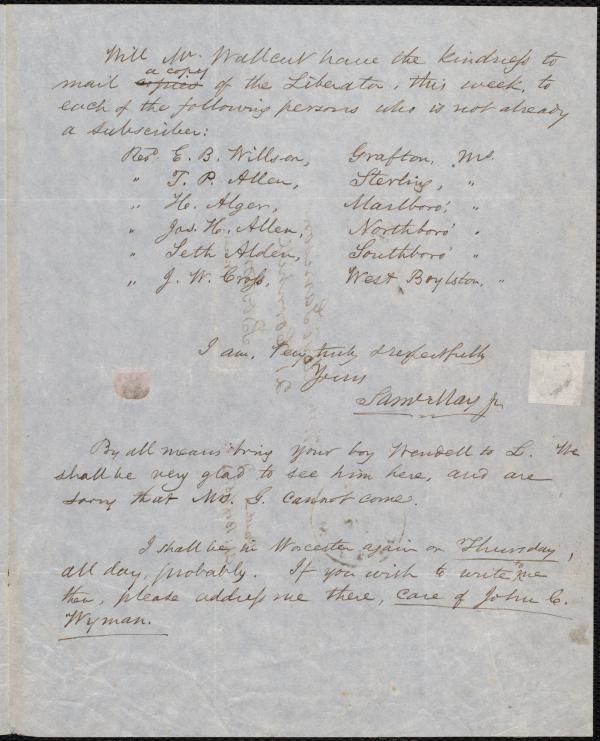 Will Mr. Wallcut have the kindness to
mail a copy of the Liberator, this week, to
each of the following persons who is not already
a subscriber:
Revd. E. B. Willson, Grafton, Ms.
" T. P. Allen, Sterling, "
" H. Alger, Marlboro', "
" Jos. H. Allen, Northboro' "
" Seth Alden, Southboro' "
" J. W. Cross, West Boylston, "
I am, very truly & respectfully
Yours
Saml. May Jr.
By all means bring your boy Wendell to L. We
shall be very glad to see him here, and are
sorry that Mrs. G. cannot come.
I shall be in Worcester again on Thursday,
all day, probably. If you wish to write to me
then, please address me there, care of John C.
Wyman.